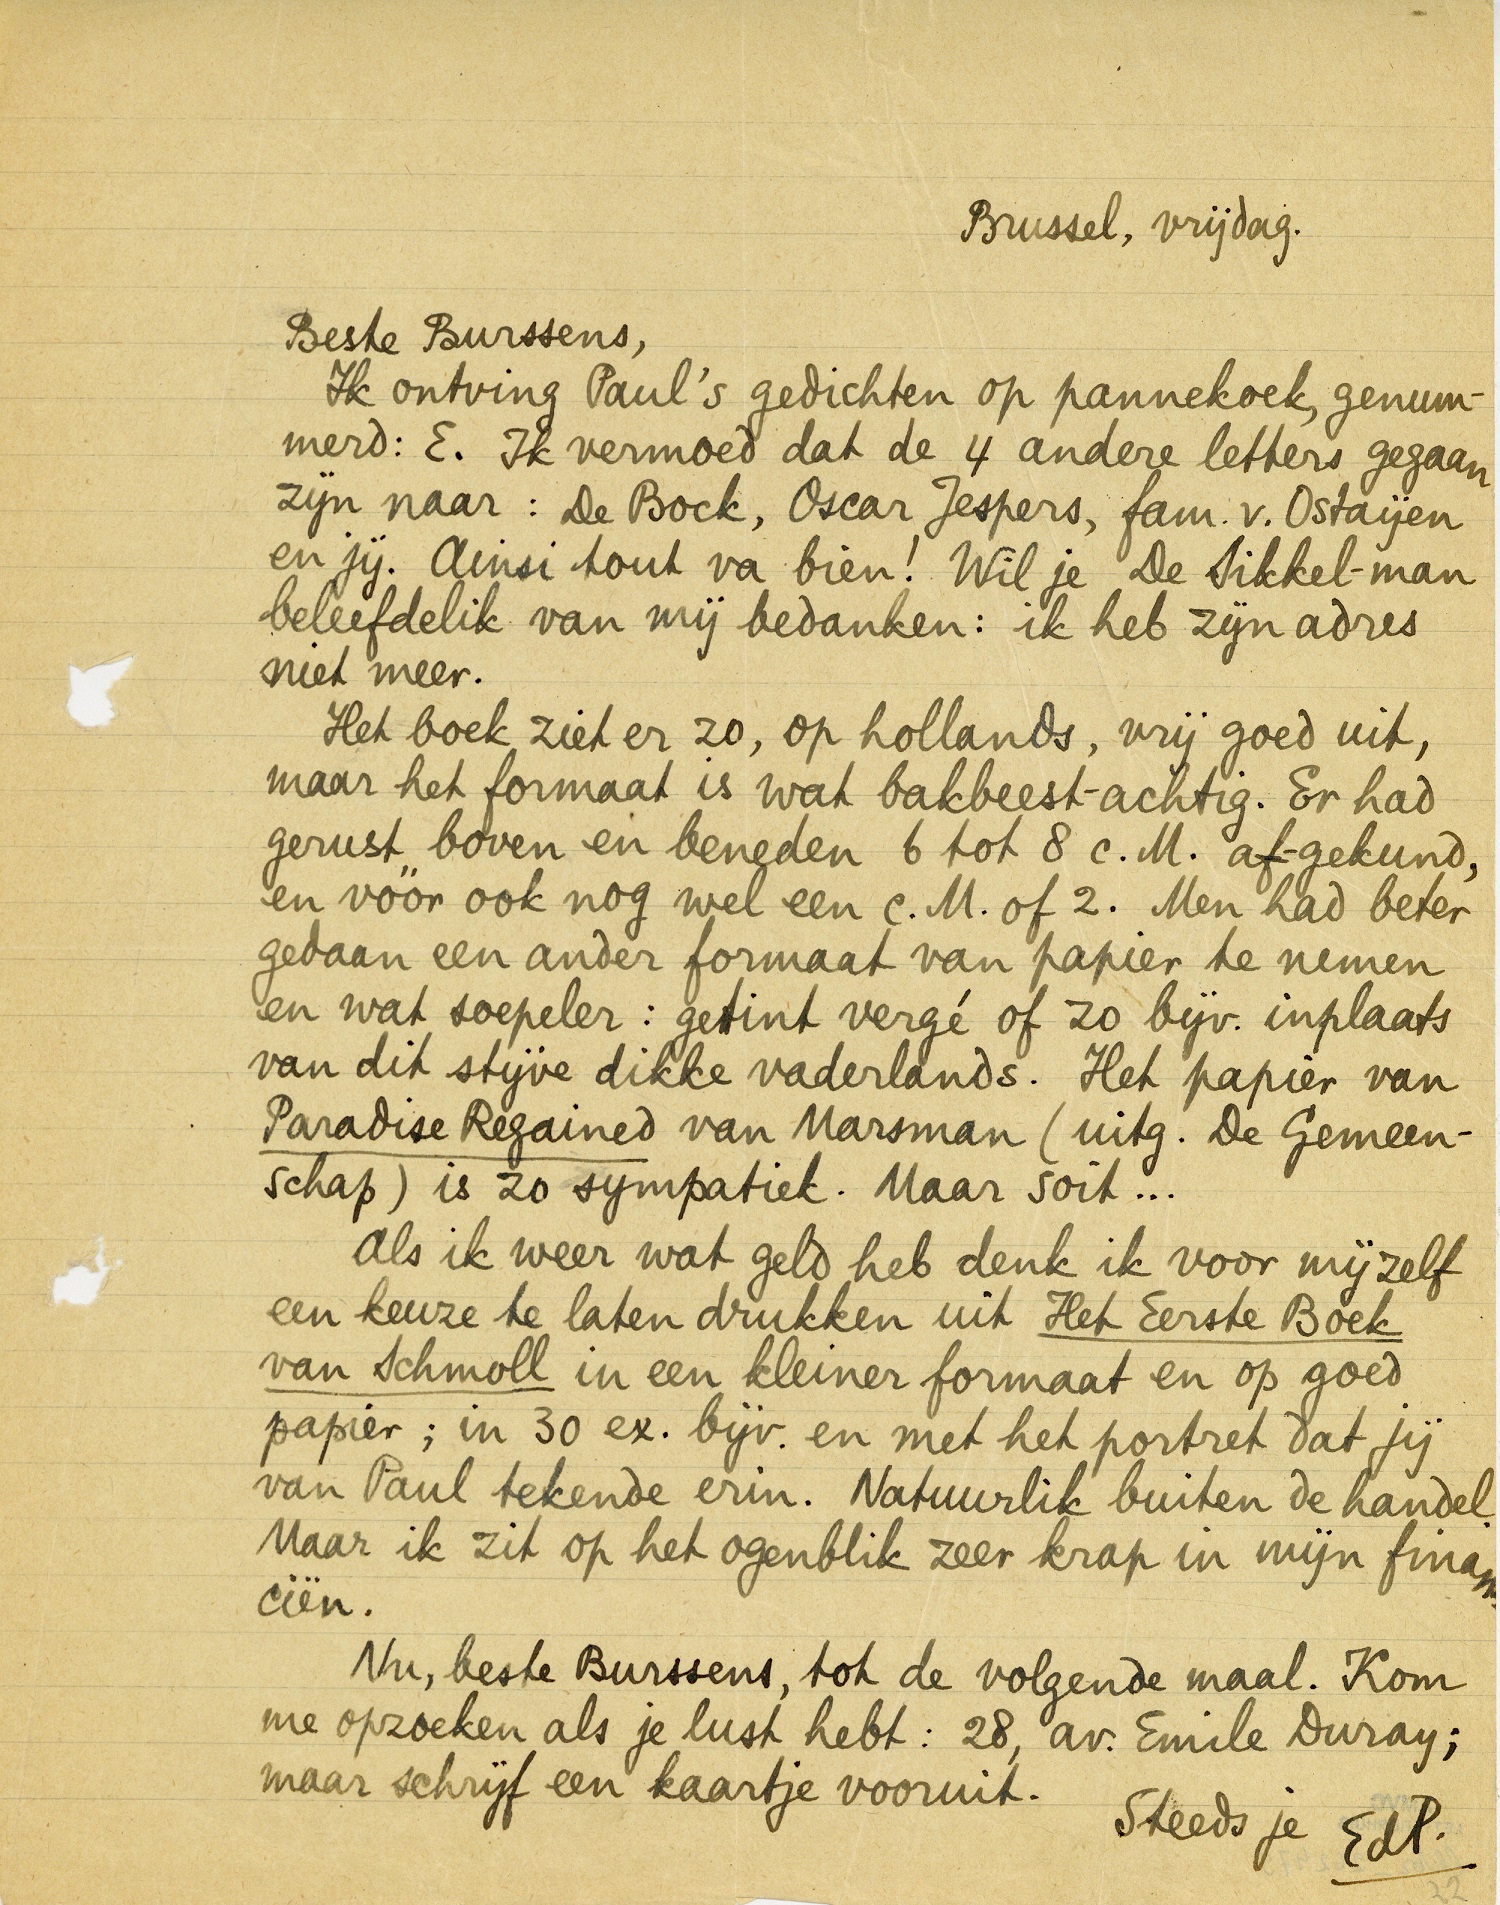 Brussel, vrijdag.
Beste Burssens,
Ik ontving Paul's gedichten op pannekoek, genum-
merd: E. Ik vermoed dat de 4 andere letters gegaan
zijn naar : De Bock, Oscar Jespers, fam. v. Ostaijen
en jij. Ainsi tout va bien! Wil je De Sikkel-man
beleefdelik van mij bedanken: ik heb zijn adres
niet meer.
Het boek ziet er zo, op hollands, vrij goed uit,
maar het formaat is wat bakbeest-achtig. Er had
gerust boven en beneden 6 tot 8 c.M. af-gekund,
en vöör ook nog wel een c.M. of 2. Men had beter
gedaan een ander formaat van papier te nemen
en wat soepeler : getint vergé of zo bijv. inplaats
van dit stijve dikke vaderlands. Het papier van
Paradise Regained van Marsman (uitg. De Gemeen-
schap) is zo sympatiek. Maar soit ...
Als ik weer wat geld heb denk ik voor mijzelf
een keuze te laten drukken uit Het Eerste Boek
van Schmoll in een kleiner formaat en op goed
papier ; in 30 ex. bijv. en met het portret dat jij
van Paul tekende erin. Natuurlik buiten de handel.
Maar ik zit op het ogenblik zeer krap in mijn finan-
ciën.
Nu, beste Burssens, tot de volgende maal. Kom
me opzoeken als je lust hebt : 28, av. Emile Duray;
maar schrijf een kaartje vooruit.
Steeds je EdP.
22